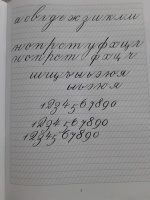 а о в г д е ж з и к л м
н о п р с т у ф х ц ч
н о п р с т ф х ц ч
ш щ ц ъ ы ь э ю я
ы ь э ю я
1 2 3 4 5 6 7 8 9 0
1 2 3 4 5 6 7 8 9 0
1 2 3 4 5 6 7 8 9 0